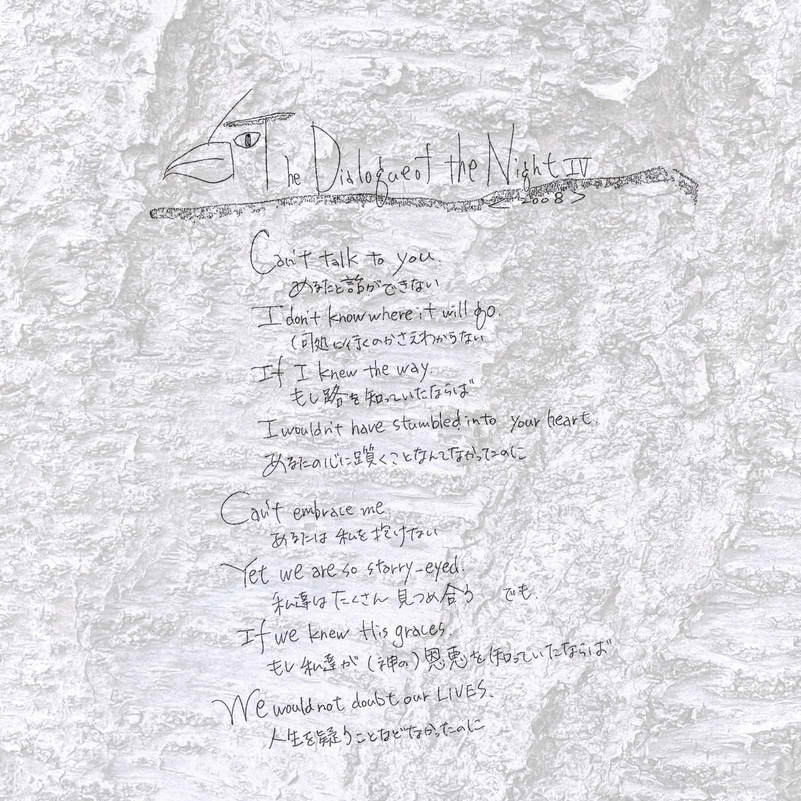 The Dialogue of the Night IV
<2008>
Can't talk to you.
あなたと話ができない
I don't know where it will go.
何処に行くのかさえわからない
If I knew the way.
もし路を知っていたならば
I wouldn't have stumbled into your heart.
あなたの心に躓くことなんてなかったのに
Can't embrace me.
あなたは私を抱けない
Yet we are so starry-eyed.
私達はたくさん見つめ合う でも.
If we knew His graces.
もし私達が(神の)恩恵を知っていたならば
We would not doubt our LIVES.
人生を疑うことなどなかったのに